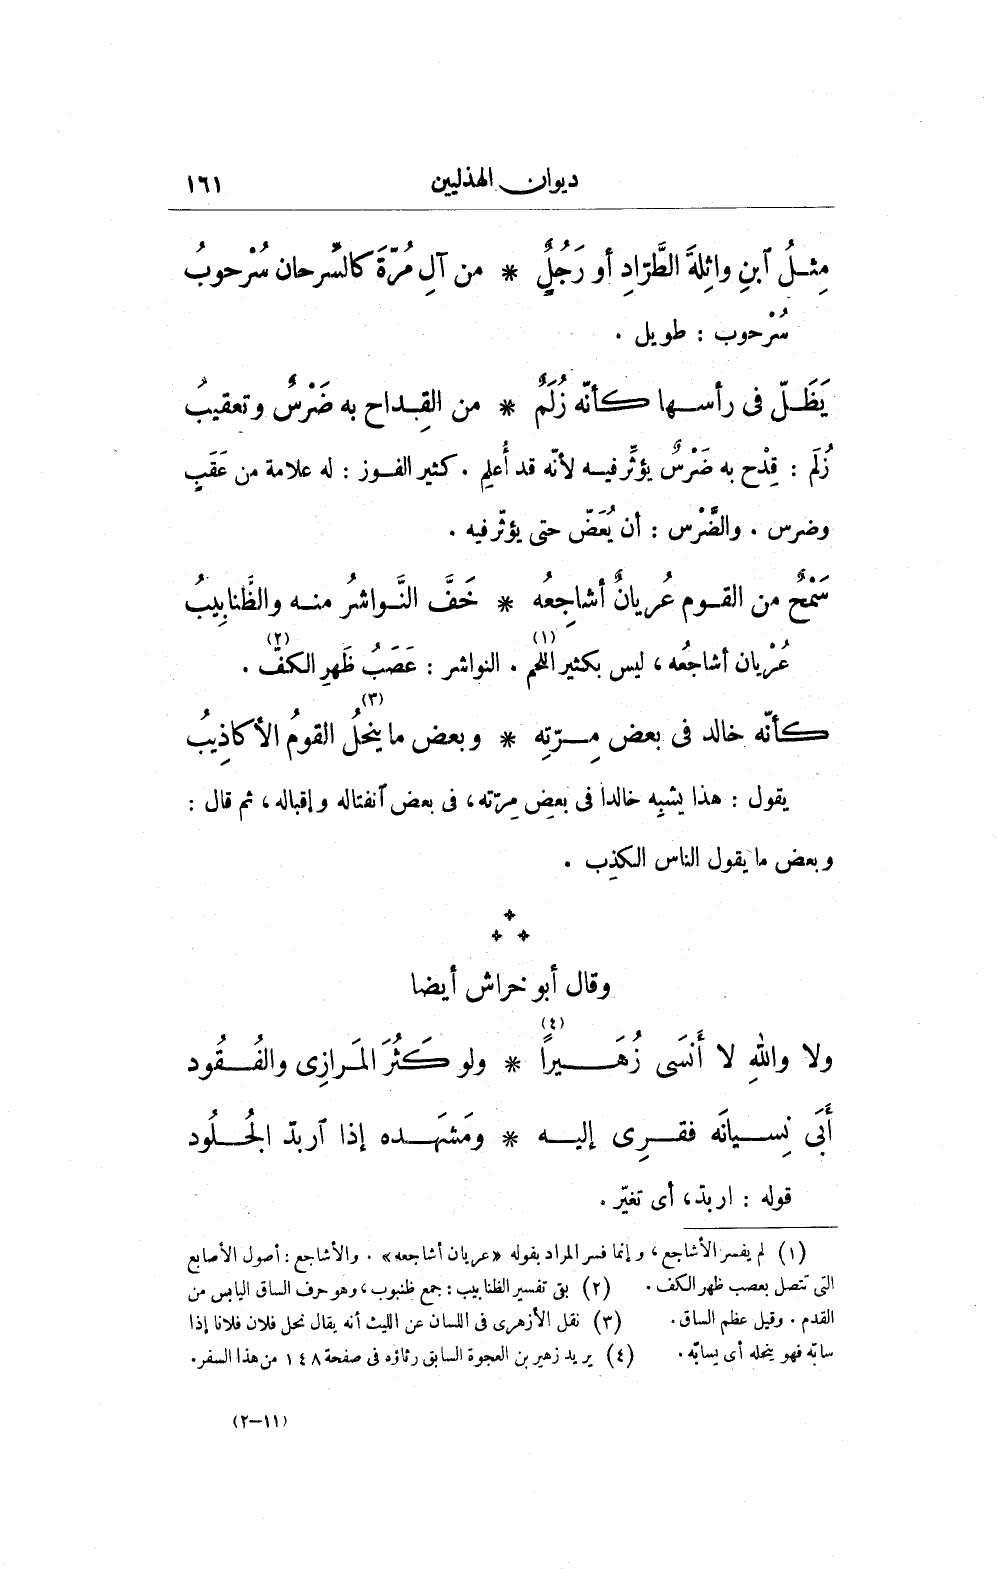 ديوان الهذليين ١٦١
مِثلُ ٱبنِ واثِلةَ الطَّرّادِ أو رَجُلٍ * من آلِ مُرّةَ كالسِّرحان سُرْحوبُ
سُرْحوب : طويل .
يَظَلّ فى رأسها كأنّه زُلَمٌ * من القِداح به ضَرْسٌ وتعقيبُ
زُلَم : قِدْح به ضَرْسٌ يؤثِّر فيه لأنّه قد أُعلِم . كثير الفوز : له علامة من عَقَبٍ
وضرس . والضَّرْس : أن يُعَضّ حتى يؤثّر فيه .
سَمْحٌ من القوم عُريانٌ أشاجِعُه * خَفَّ النَّواشرُ منه والظَّنابيبُ
عُرْيان أشاجُعه ، ليس بكثير اللحم (١) . النواشر : عَصَبُ ظَهرِ الكفّ (٢) .
كأنّه خالد فى بعض مِرّتِه * وبعض ما ينحلُ (٣) القومُ الأكاذِيبُ
يقول : هذا يشبِه خالدا فى بعضِ مِرّته ، فى بعض ٱنفتاله وإقباله ، ثم قال :
وبعض ما يقول الناس الكذِب .
وقال أبو خراش أيضا
ولا واللهِ لا أَنسَى زُهَيرًا (٤) * ولو كَثُرَ المَرازِى والفُقُود
أَبَى نِسيانَه فقرِى إليه * ومَشهَده إذا ٱربدّ الجُلُود
قوله : اربدّ ، أى تغيّر .
(١) لم يفسر الأشاجع ، وإنما فسر المراد بقوله «عريان أشاجعه» . والأشاجع : أصول الأصابع
التى تتصل بعصب ظهر الكف . (٢) بقى تفسير الظنابيب : جمع ظنبوب ، وهو حرف الساق اليابس من
القدم . وقيل عظم الساق . (٣) نقل الأزهرى فى اللسان عن الليث أنه يقال نحل فلان فلانا إذا
سابّه فهو ينحله أى يسابّه . (٤) يريد زهير بن العجوة السابق رثاؤه فى صفحة ١٤٨ من هذا السفر .
(٢-١١)